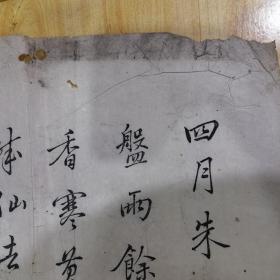 四月朱
盤雨餘
香寒
仙去